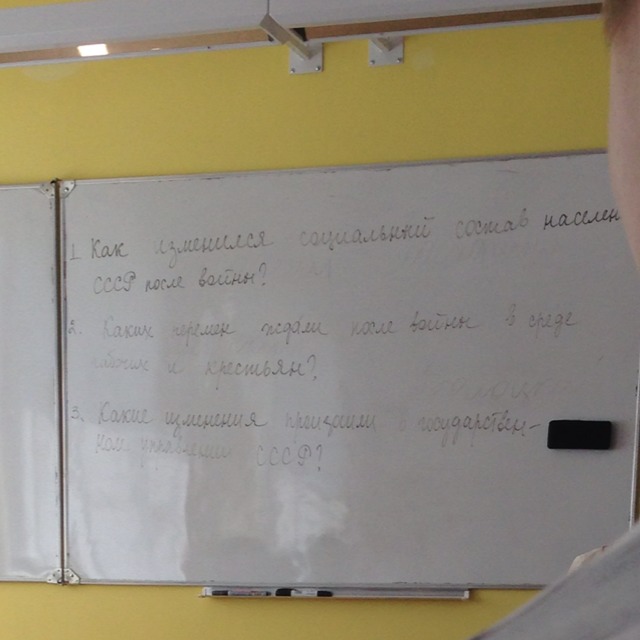 1 Как изменился социальный состав населен
СССР после войны?
2. Каких перемен ждали после войны в среде
рабочих и крестьян?
3. Какие изменения произошли в государствен-
ном управлении СССР?